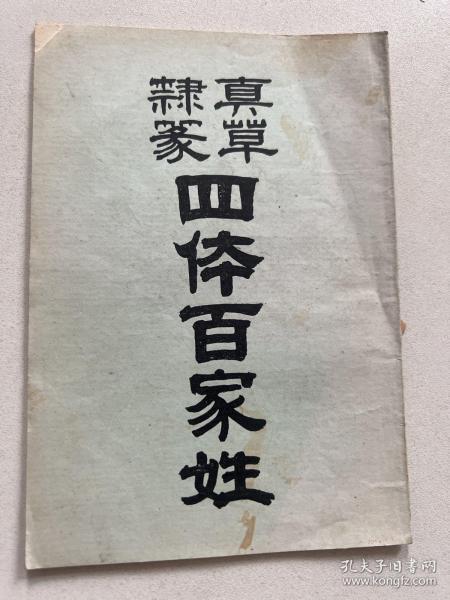 真草
隸篆
四体百家姓
孔夫子旧书网
www.kongfz.com